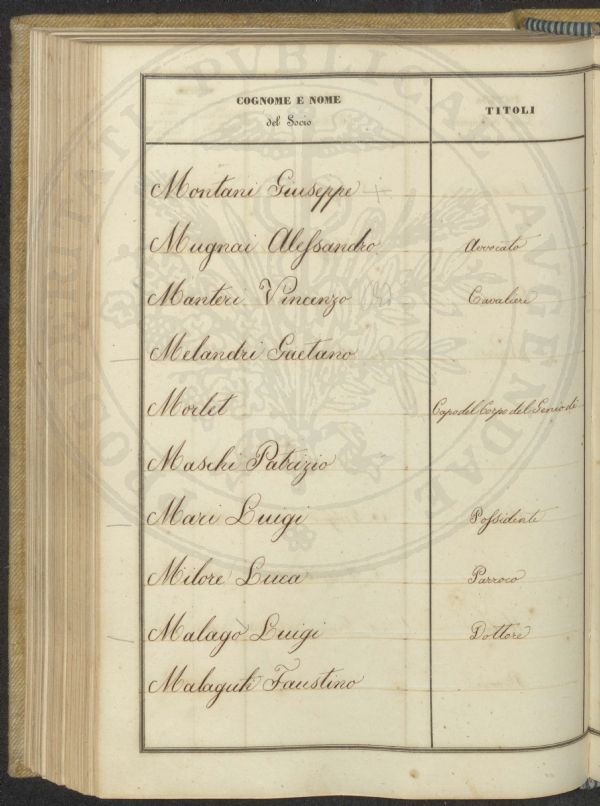 COGNOME E NOME
del Socio
TITOLI
Montani Giuseppe +
Mugnai Alessandro Avvocato
Manteri Vincenzo Cavaliere
Melandri Gaetano
Mortet Capo del Corpo del Genio di
Maschi Patrizio
Mari Luigi Possidente
Milore Luca Parroco
Malagò Luigi Dottore
Malaguti Faustino
PROSPERITATI PVBLICAE AVGENDAE